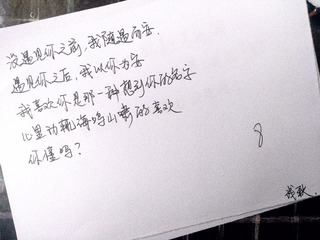 没遇见你之前，我随遇而安.
遇见你之后，我以你为安
我喜欢你是那一种想到你的名字
心里动辄海鸣山啸的喜欢
你懂吗？
8